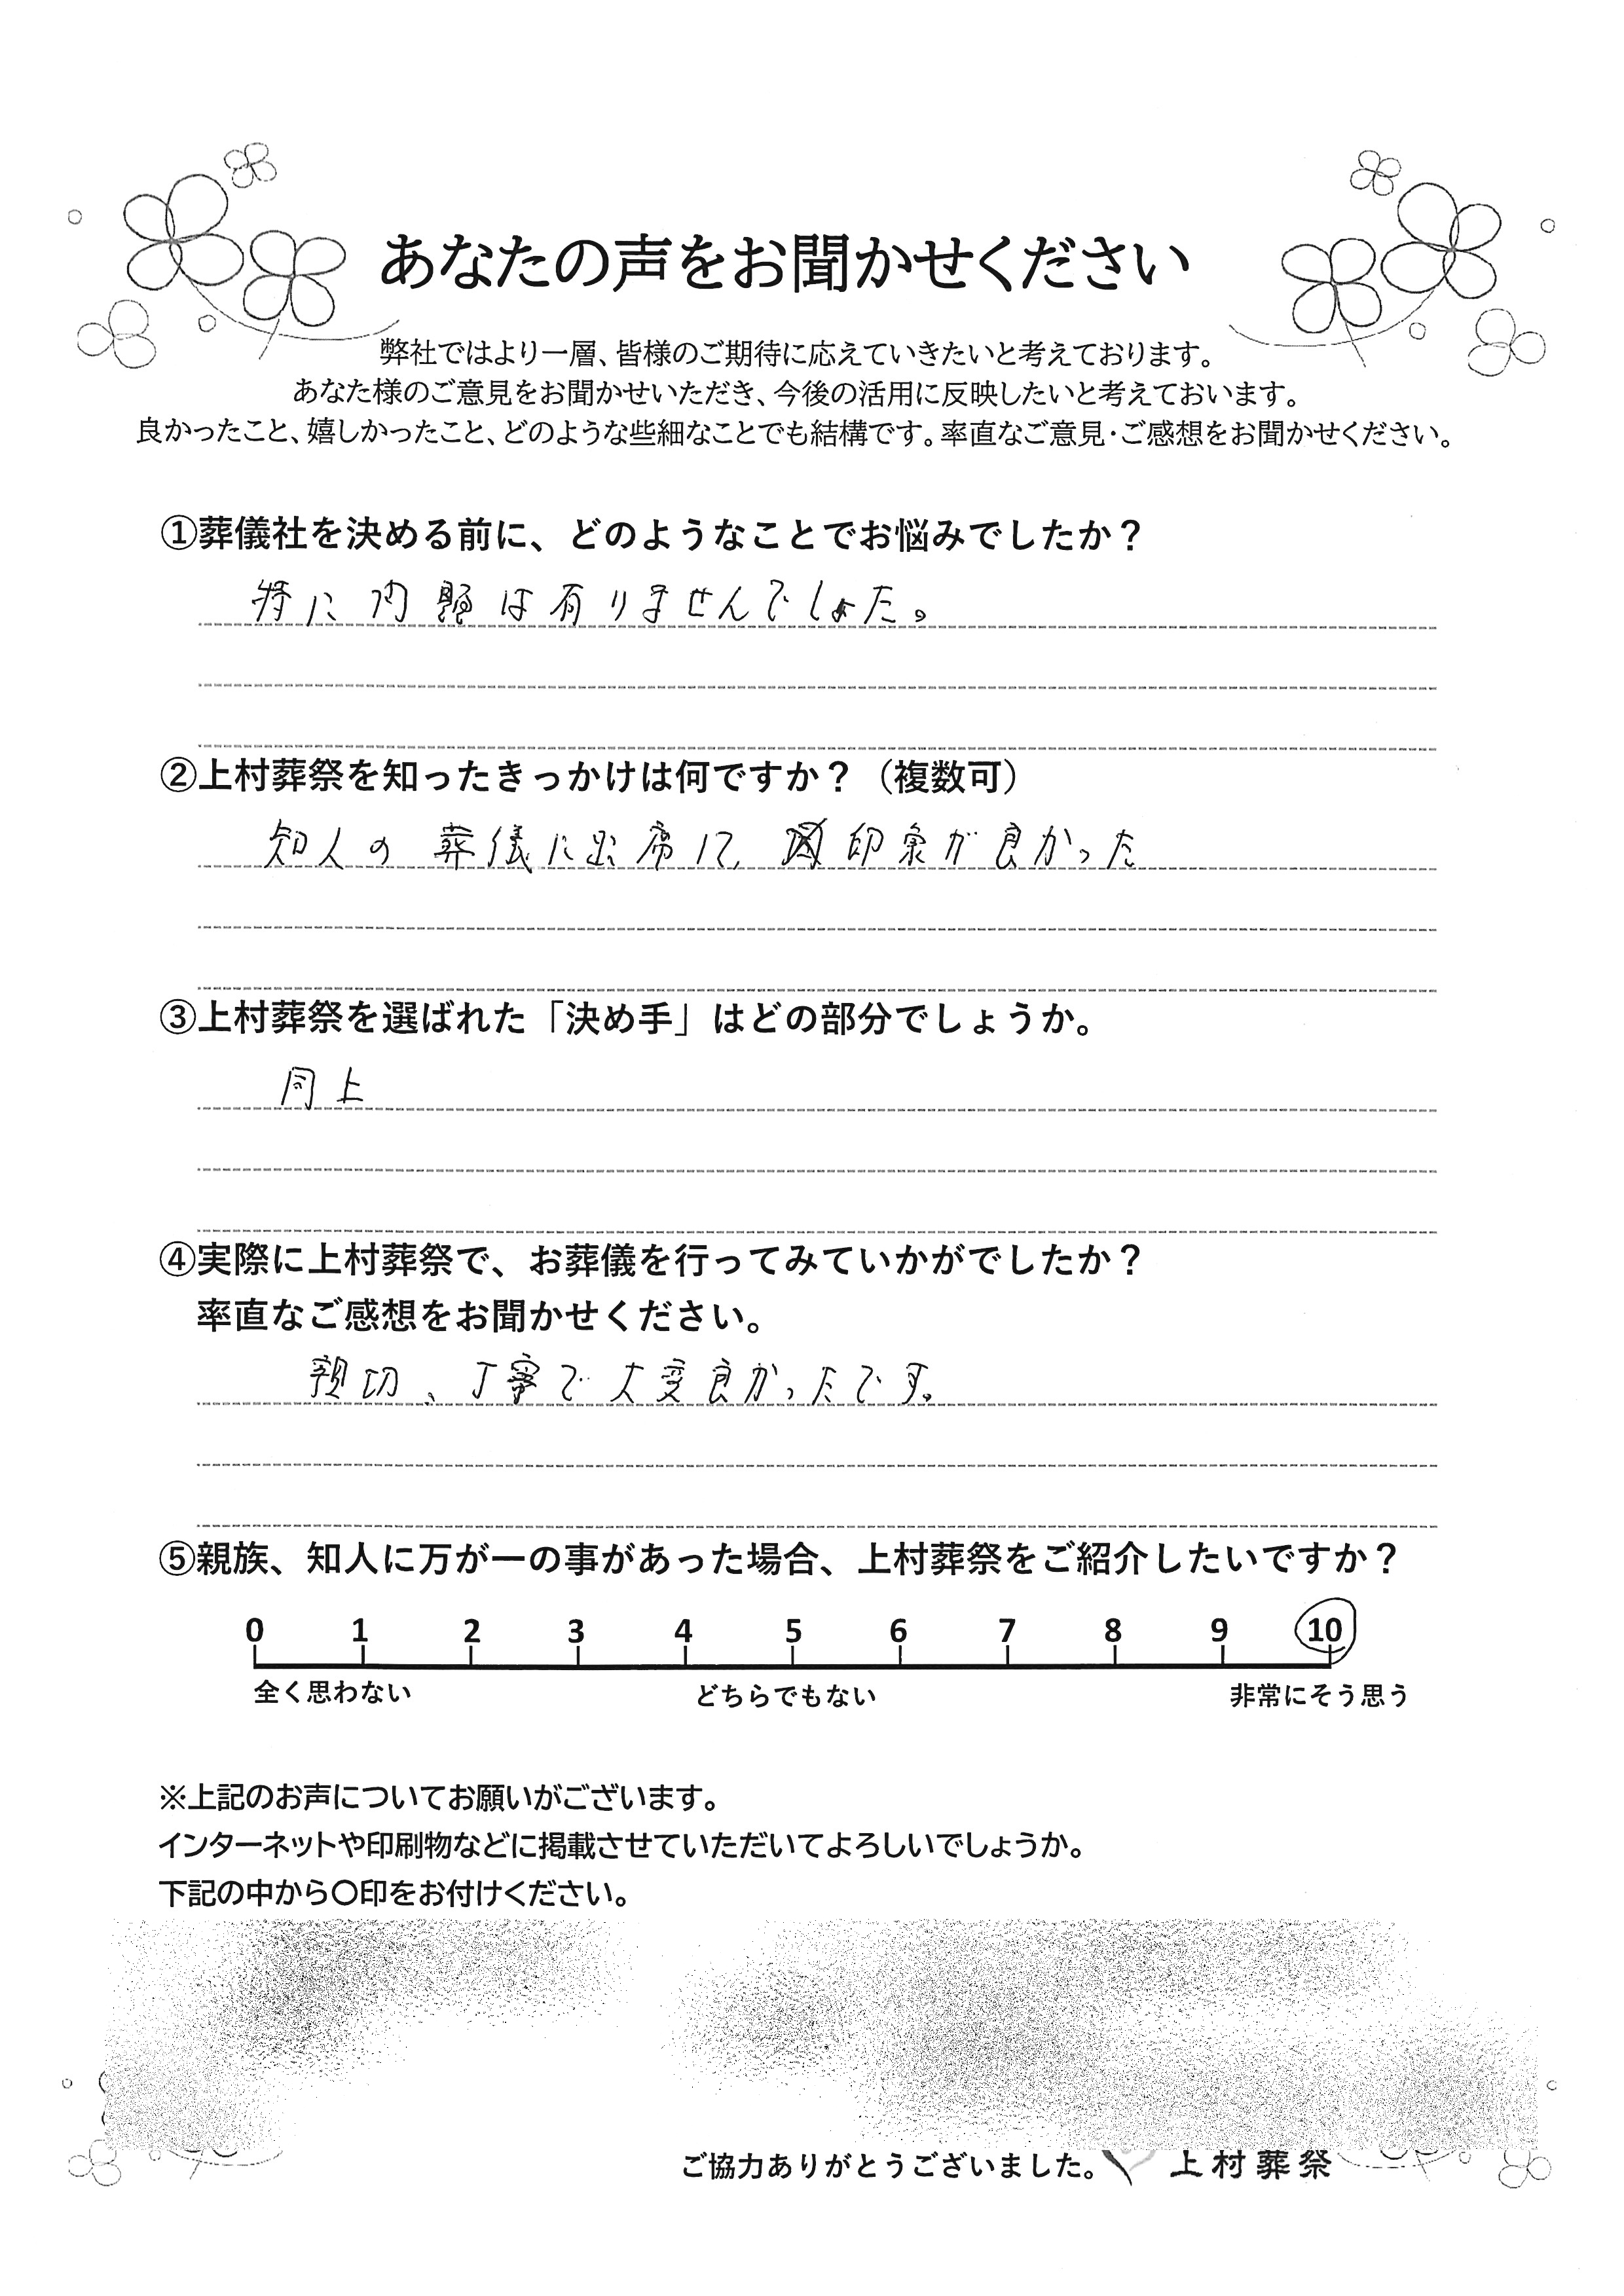 あなたの声をお聞かせください
弊社ではより一層、皆様のご期待に応えていきたいと考えております。
あなた様のご意見をお聞かせいただき、今後の活用に反映したいと考えておいます。
良かったこと、嬉しかったこと、どのような些細なことでも結構です。率直なご意見・ご感想をお聞かせください。
①葬儀社を決める前に、どのようなことでお悩みでしたか？
特に問題は有りませんでした。
②上村葬祭を知ったきっかけは何ですか？（複数可）
知人の葬儀に出席して、印象が良かった
③上村葬祭を選ばれた「決め手」はどの部分でしょうか。
同上
④実際に上村葬祭で、お葬儀を行ってみていかがでしたか？
率直なご感想をお聞かせください。
親切、丁寧で大変良かったです。
⑤親族、知人に万が一の事があった場合、上村葬祭をご紹介したいですか？
0 1 2 3 4 5 6 7 8 9 10
全く思わない どちらでもない 非常にそう思う
※上記のお声についてお願いがございます。
インターネットや印刷物などに掲載させていただいてよろしいでしょうか。
下記の中から〇印をお付けください。
ご協力ありがとうございました。 上村葬祭